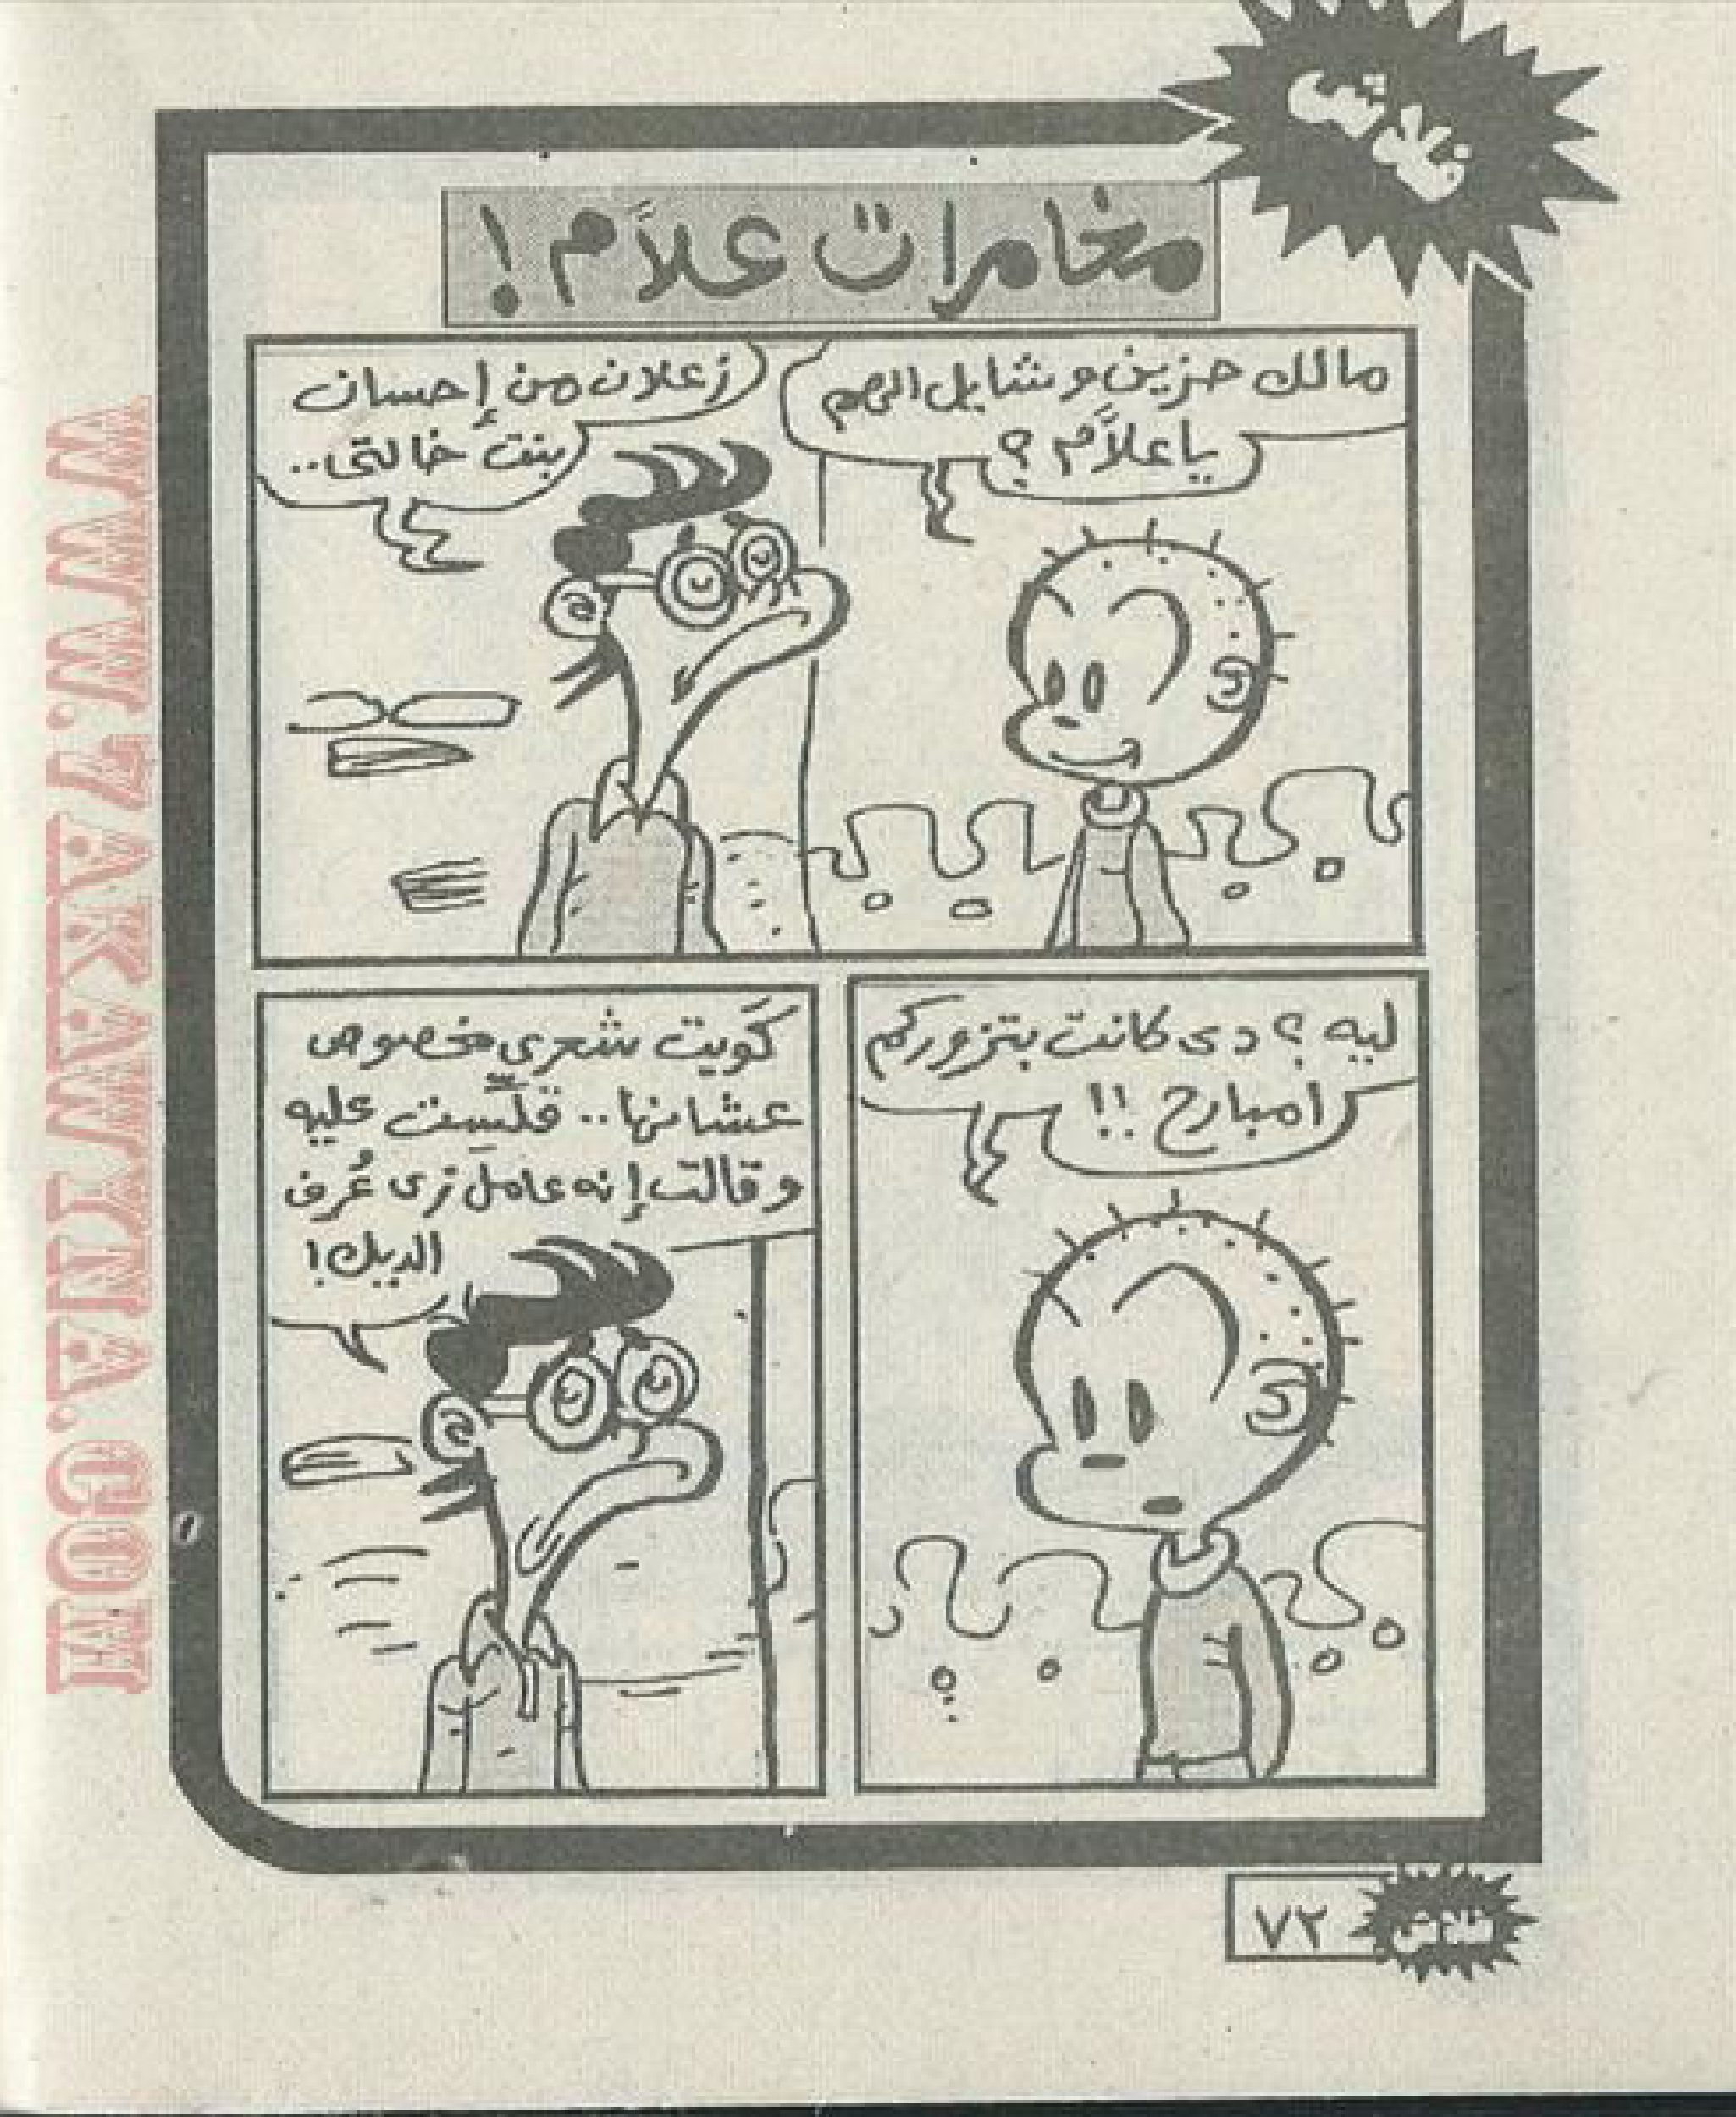 فلاش
مغامرات علاَّم!
مالك حزين وشايل الهم
ياعلاَّم؟
زعلان من إحسان
بنت خالتى..
ليه؟ دى كانت بتزوركم
امبارح!!
كَويت شعرى مخصوص
عشانها.. قلّسِت عليه
وقالت إنه عامل زى عُرف
الديك!
٧٢
فلاش
WWW.7AKAWITNA.COM